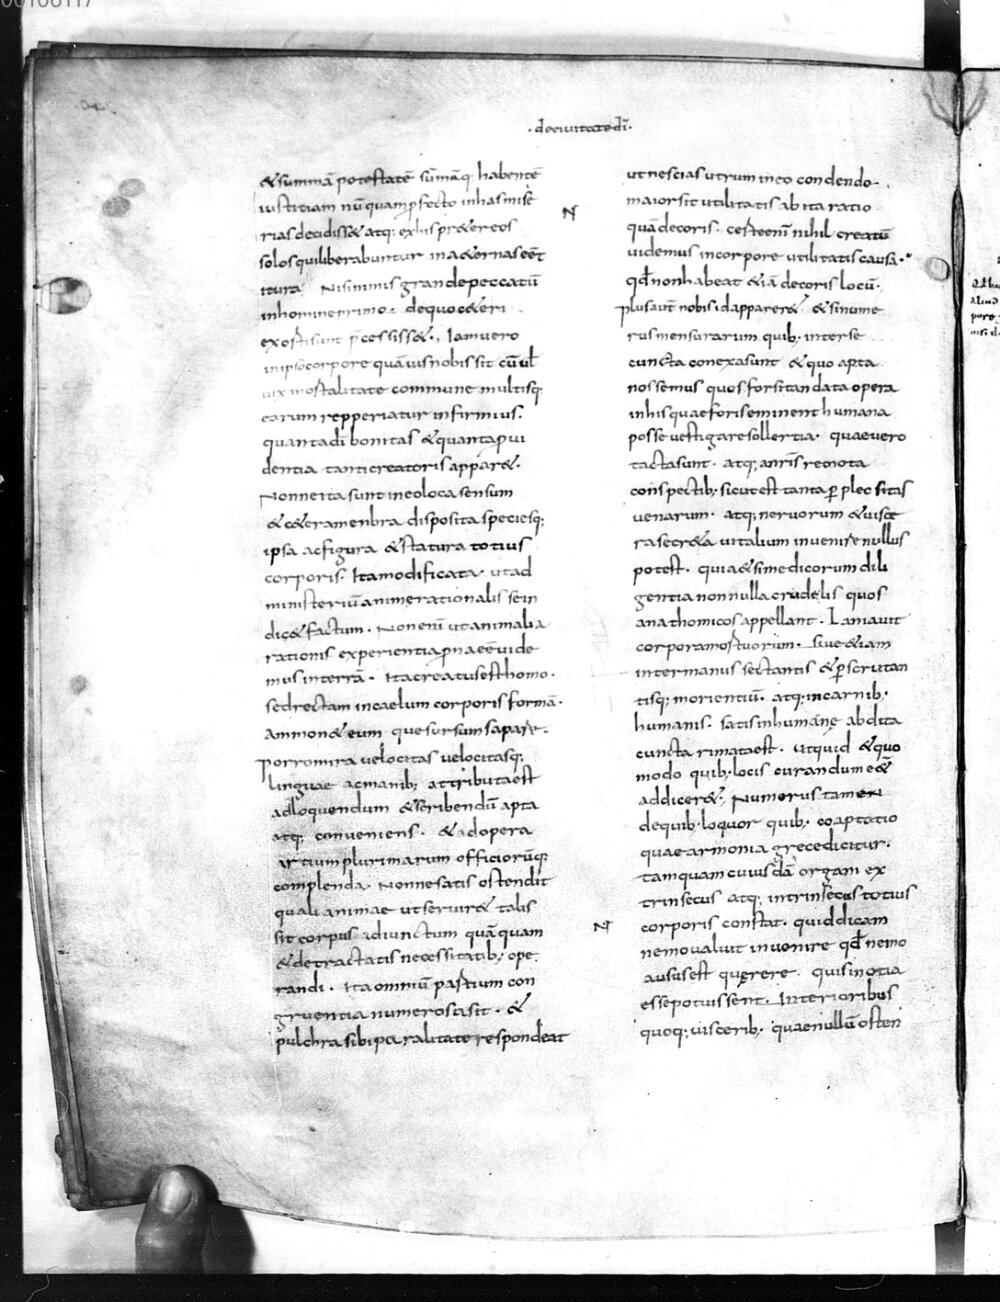 ·deciuitatedī·
&summā potestatē sūmāq· habentē
iustitiam nūquam ꝓfecto inhasmisē
riasdecidiss& atq; exhis pr&ereos
solosquiliberabuntur ina&ernaseēt
itura Nisinimis grandepeccatū
inhomineprimo· dequoc&eri
exostisunt p̄cessiss&· Iamuero
inipsocorpore quāuisnobissit cūuł
uix mortalitate commune multisq;
earum repperiatur infirmius·
quantadī bonitas &quantaꝓui
dentia tanticreatorisappar&·
Nonneita sunt ineoloca sensum
&c&eramenbra disposita speciesq;
ipsa acfigura &statura totius
corporis· Itamodificata· utad
ministeriū animerationalis sein
dic& factum· Nonenī utanimalia
rationis experientiaꝓnaeēuide
mus interrā· Itacreatusesthomo·
sedrectam incaelum corporis formā·
Ammon& eum quesursumsapare·
Porromira uelocitas uelocitasq;
linguae acmanib; attributaest
adloquendum &scribendū apta
atq; conueniens· &adopera
artiumplurimarum officiorūq;
complenda· Nonnesatis ostendit
quali animae utseruir& talis
sit corpus adiunctum quāquam
&detractatis necessitatib; ope
randi· Ita omniū partium con
gruentia numerosasit· &
pulchrasibiparalitate respondeat
ut nescias utrum ineo condendo·
maiorsit utilitatis ab ita ratio
N
quādecoris· certeenī nihil creatū
uidemus incorpore utilitatis causa·
qđ nonhabeat &iā decoris locū·
Plusaūt nobis idapparer& &sinume
rus mensurarum quib; interse
cuncta conexasunt &quo apta
nossemus quos forsitan data opera
inhis quaeforiseminent humana
posse uestigaresollertia· quaeuero
tactasunt· atq; anrīs remota
conspectib; sicutest tantaꝑplecsitas
uenarum· atq; neruorum &uisce
rasecr&a uitalium inuenire nullus
potest· quia&simedicorum dili
gentia nonnulla crudelis quos
anathomicos appellant· Laniauit
corpora mortuorum· siue&iam
intermanus sectantis &ꝑscrutan
tisq; morientiū· atq; incarnib;
humanis· satis inhumane abdita
cuncta rimataest· utquid &quo
modo quib; locis curandumeē
addicer&· Numerus tamen
dequib·loquor quib; coaptatio
quaearmonia grecedicitur·
tamquam cuiusdā organi ex
trinsecus atq; intrinsecus totius
N
corporis constat· quid dicam
nemoualuit inuenire qđ nemo
aususest querere· quisinotia
essepotuissent· Interioribus
quoq; uiscerib; quaenullū osten